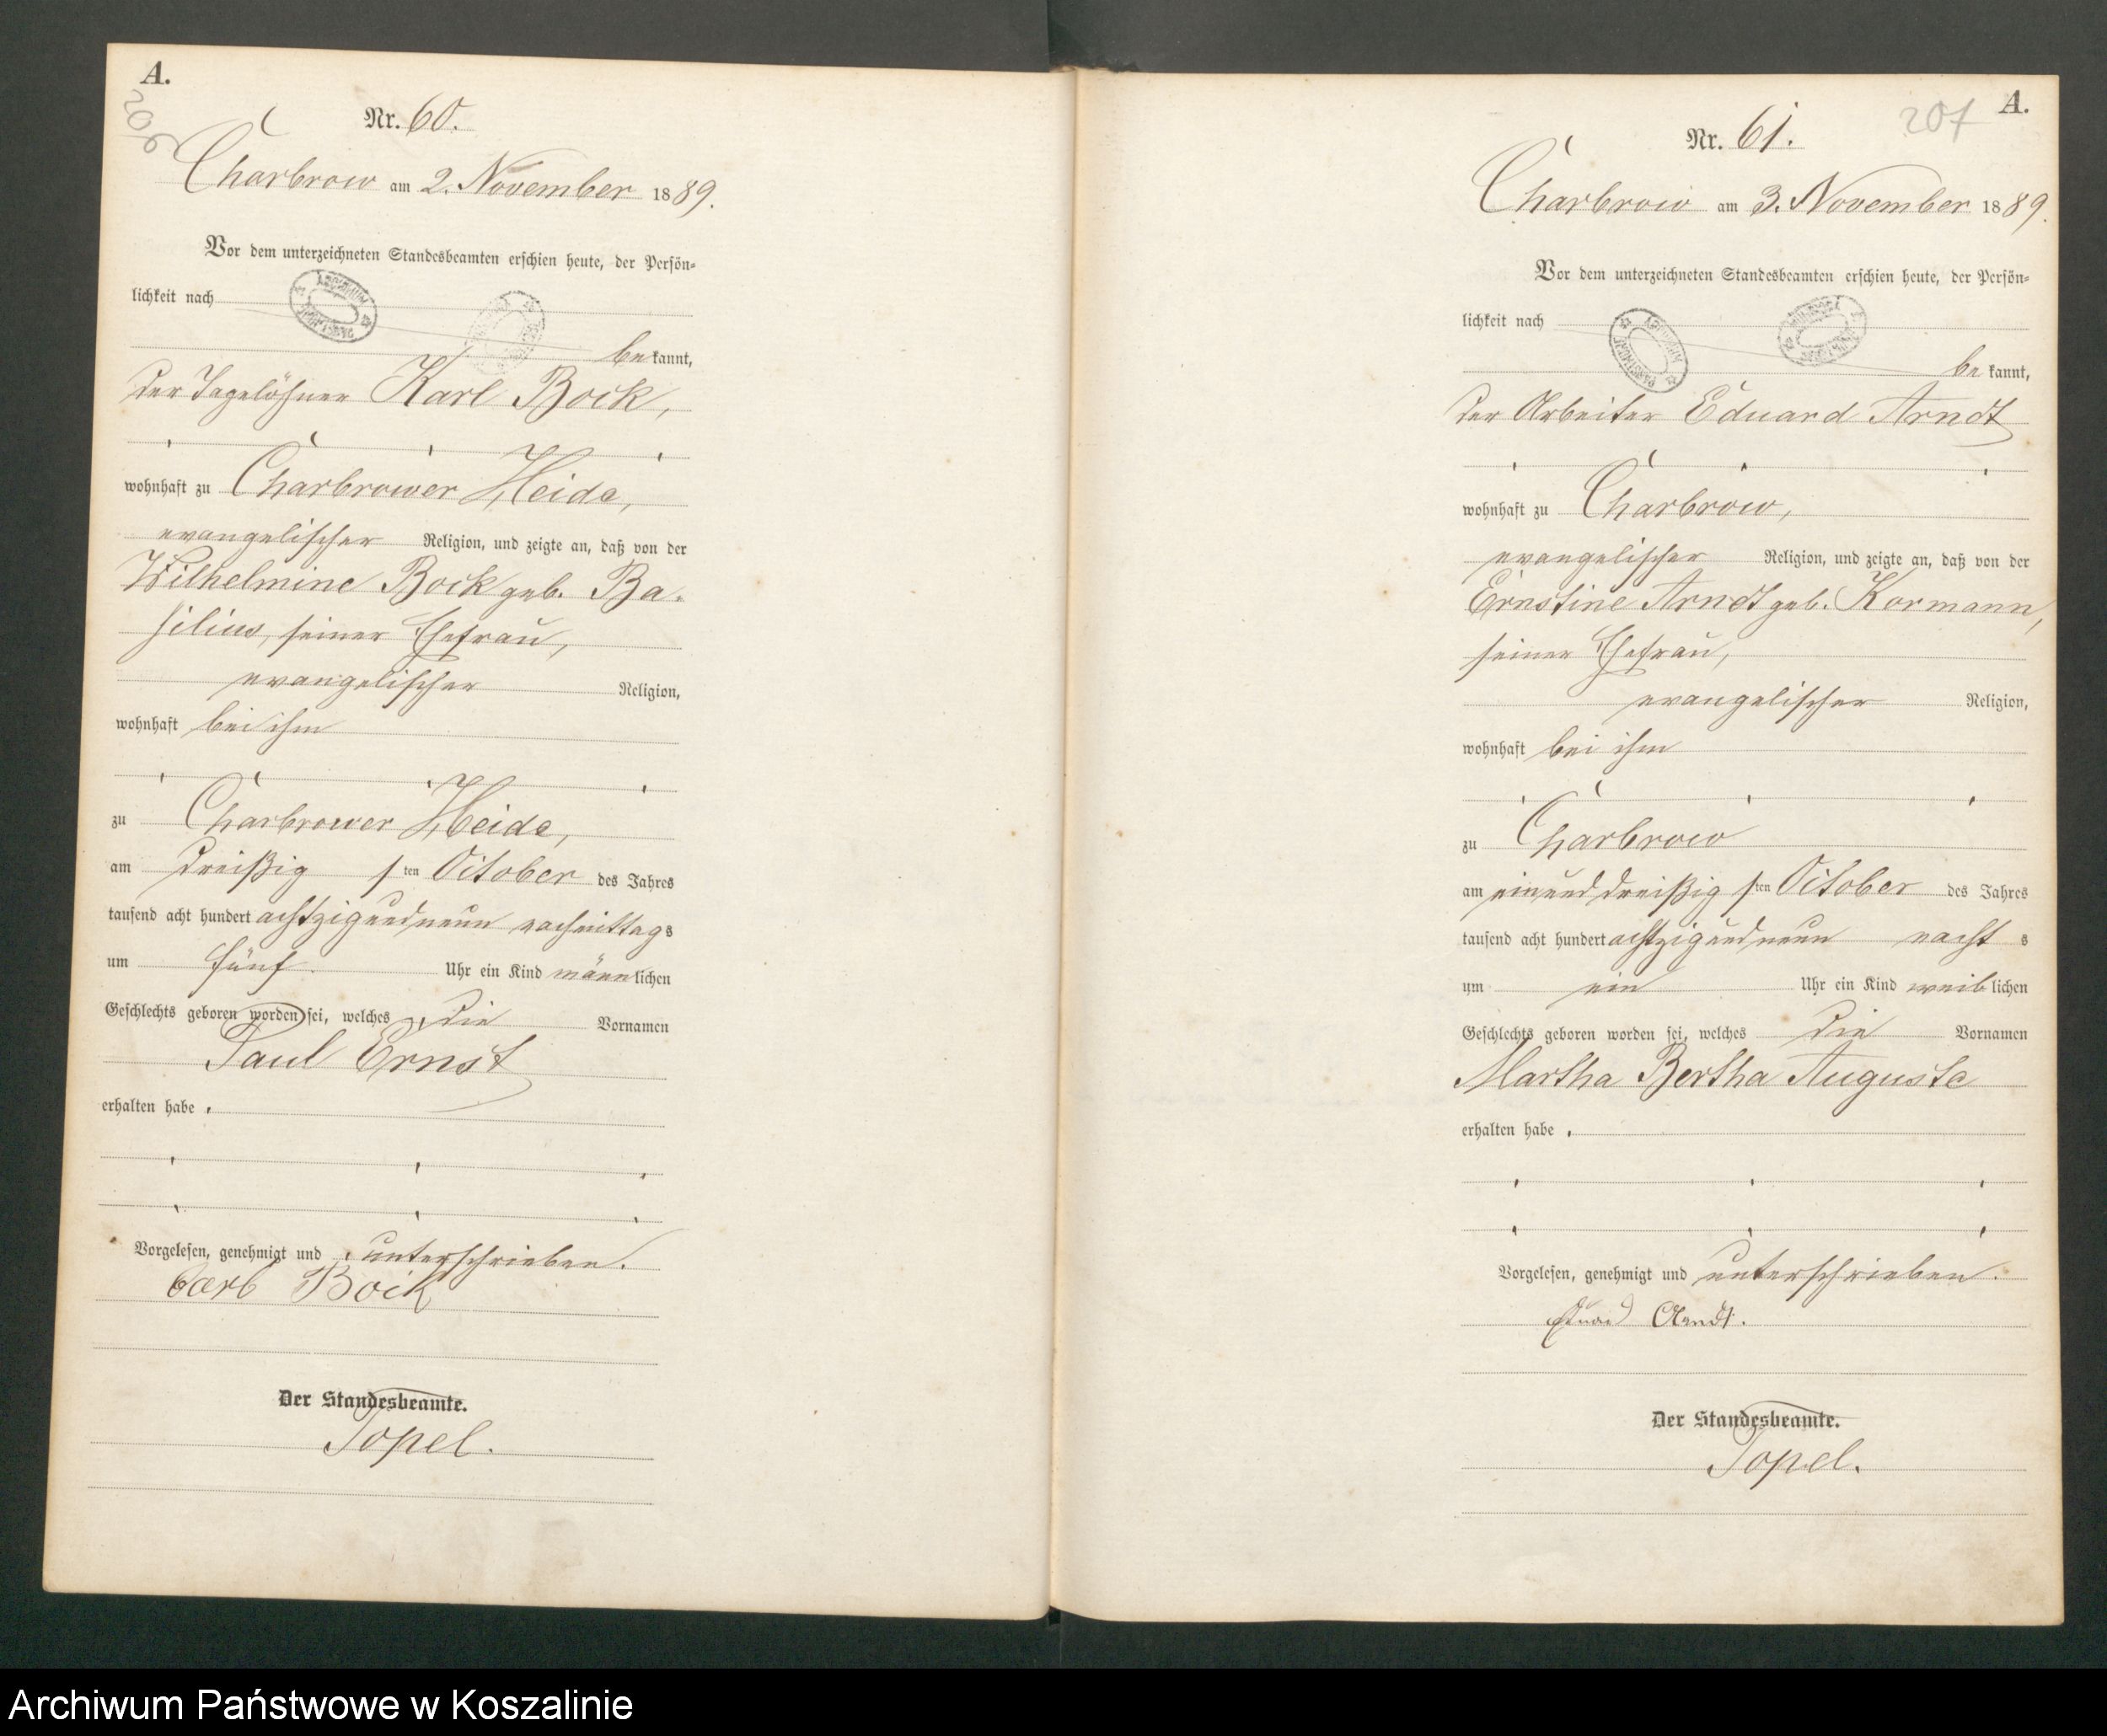 A.
206
Nr. 60.
Charbrow am 2. November 1889.
Vor dem unterzeichneten Standesbeamten erschien heute, der Persön-
lichkeit nach
bekannt,
der Tagelöhner Karl Bock,
wohnhaft zu Charbrower Heide,
evangelischer Religion, und zeigte an, daß von der
Wilhelmine Bock geb. Ba-
silius, seiner Ehefrau,
evangelischer Religion,
wohnhaft bei ihm
zu Charbrower Heide,
am dreißig sten October des Jahres
tausend acht hundert achtzig und neun nachmittags
um fünf Uhr ein Kind männlichen
Geschlechts geboren worden sei, welches die Vornamen
Paul Ernst
erhalten habe.
Vorgelesen, genehmigt und unterschrieben.
Carl Bock
Der Standesbeamte.
Topel.
207 A.
Nr. 61.
Charbrow am 3. November 1889.
Vor dem unterzeichneten Standesbeamten erschien heute, der Persön-
lichkeit nach
bekannt,
der Arbeiter Eduard Arndt
wohnhaft zu Charbrow,
evangelischer Religion, und zeigte an, daß von der
Ernstine Arndt geb. Kormann,
seiner Ehefrau,
evangelischer Religion,
wohnhaft bei ihm
zu Charbrow
am einunddreißig sten October des Jahres
tausend acht hundert achtzig und neun nachts
um ein Uhr ein Kind weiblichen
Geschlechts geboren worden sei, welches die Vornamen
Martha Bertha Auguste
erhalten habe.
Vorgelesen, genehmigt und unterschrieben.
Eduard Arndt.
Der Standesbeamte.
Topel.
Archiwum Państwowe w Koszalinie